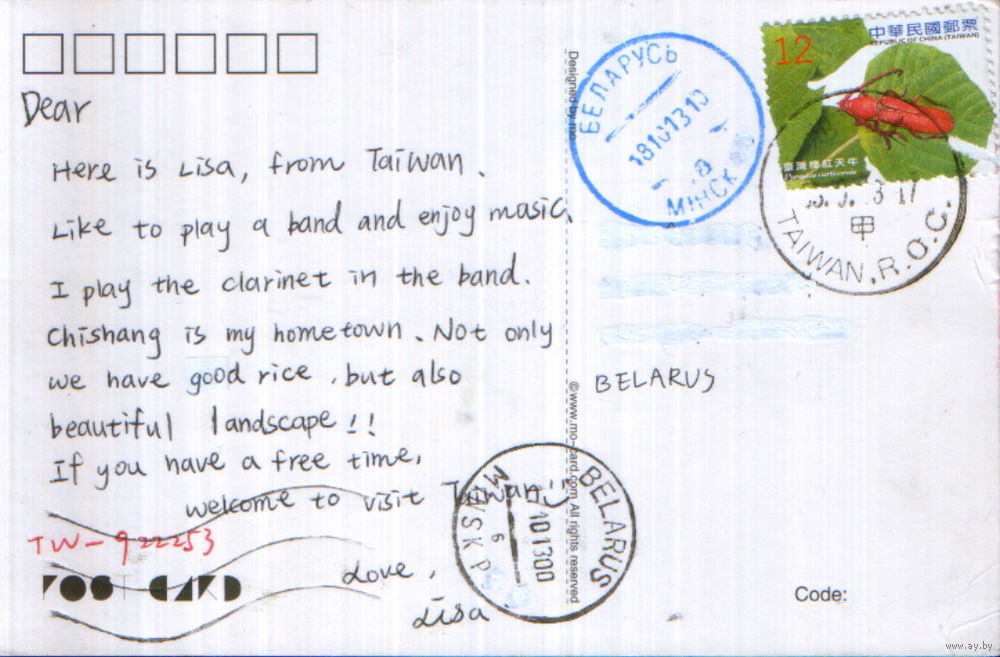 Dear
Here is Lisa, from Taiwan.
Like to play a band and enjoy music.
I play the clarinet in the band.
Chishang is my hometown. Not only
we have good rice, but also
beautiful landscape!!
If you have a free time,
welcome to visit Taiwan
TW-922253
POST CARD
Love,
Lisa
Designed by mo
©www.mo-card.com All rights reserved
БЕЛАРУСЬ
18101310
МІНСК
12
中華民國郵票
REPUBLIC OF CHINA (TAIWAN)
臺灣樟紅天牛
甲
TAIWAN, R.O.C.
BELARUS
BELARUS
MINSK P
6
Code:
www.ay.by